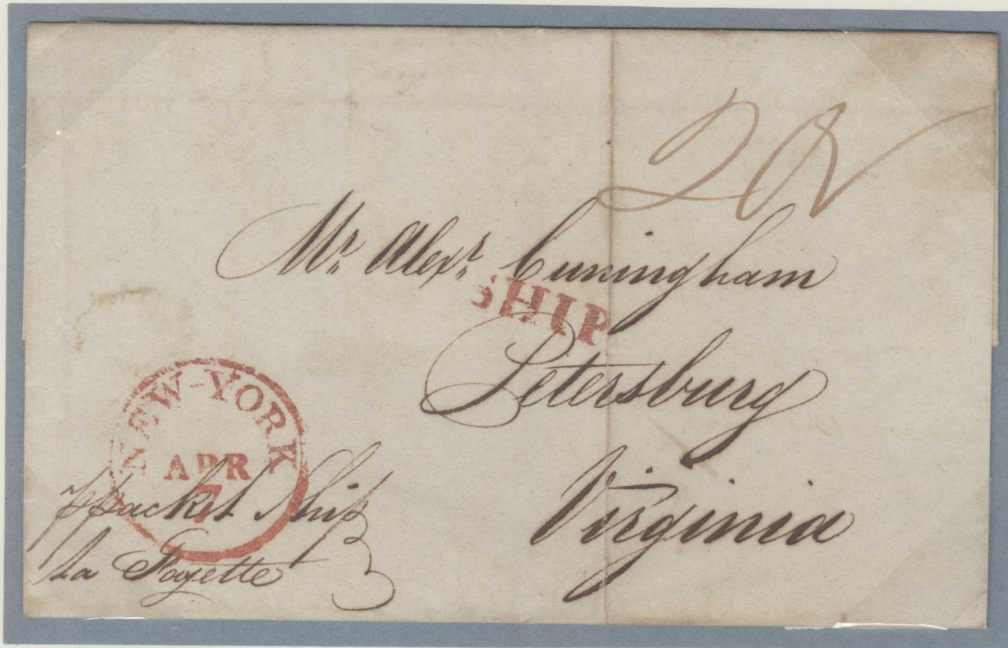 20¾
Mr. Alexr. Cuningham
SHIP
Petersburg
Virginia
NEW-YORK
APR
7
pr packet Ship
La Fayette